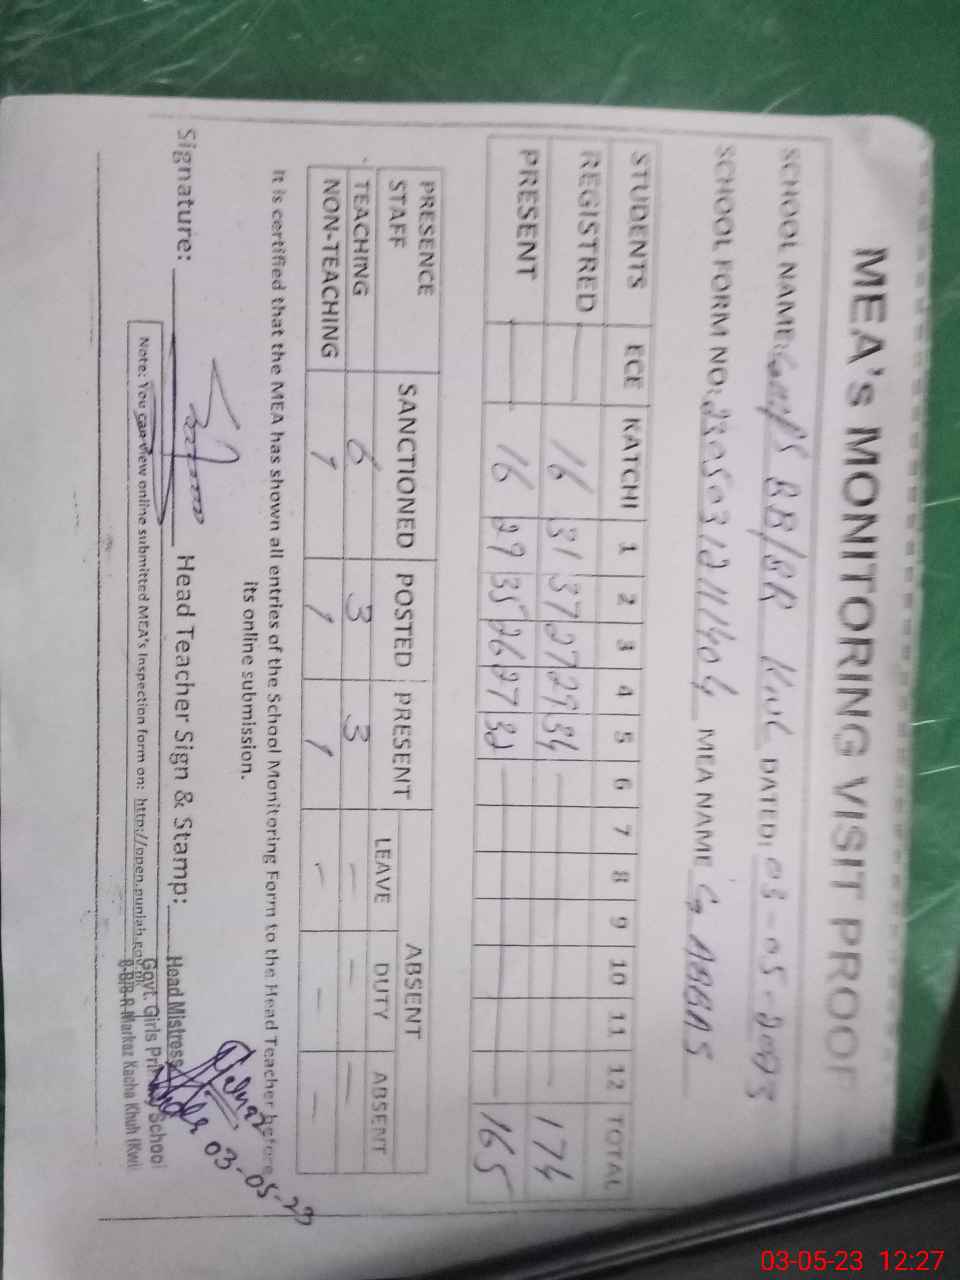 MEA's MONITORING VISIT PROOF
SCHOOL NAME: GGPS 8B/8R KWL DATED: 03-05-2023
SCHOOL FORM NO: 23050312111404 MEA NAME G. ABBAS
STUDENTS ECE KATCHI 1 2 3 4 5 6 7 8 9 10 11 12 TOTAL
REGISTRED — 16 31 37 27 29 34 — 174
PRESENT 16 29 35 26 27 32 — 165
PRESENCE STAFF SANCTIONED POSTED PRESENT ABSENT
LEAVE DUTY ABSENT
TEACHING 6 3 3 — — —
NON-TEACHING 1 1 1 — — —
It is certified that the MEA has shown all entries of the School Monitoring Form to the Head Teacher before
its online submission.
Signature: Head Teacher Sign & Stamp:
Head Mistress
Govt. Girls Primary School
8-B/8-R Markaz Kacha Khuh (Kwl
03-05-23
Note: You can view online submitted MEA's Inspection form on: http://open.punjab.gov.pk
03-05-23 12:27